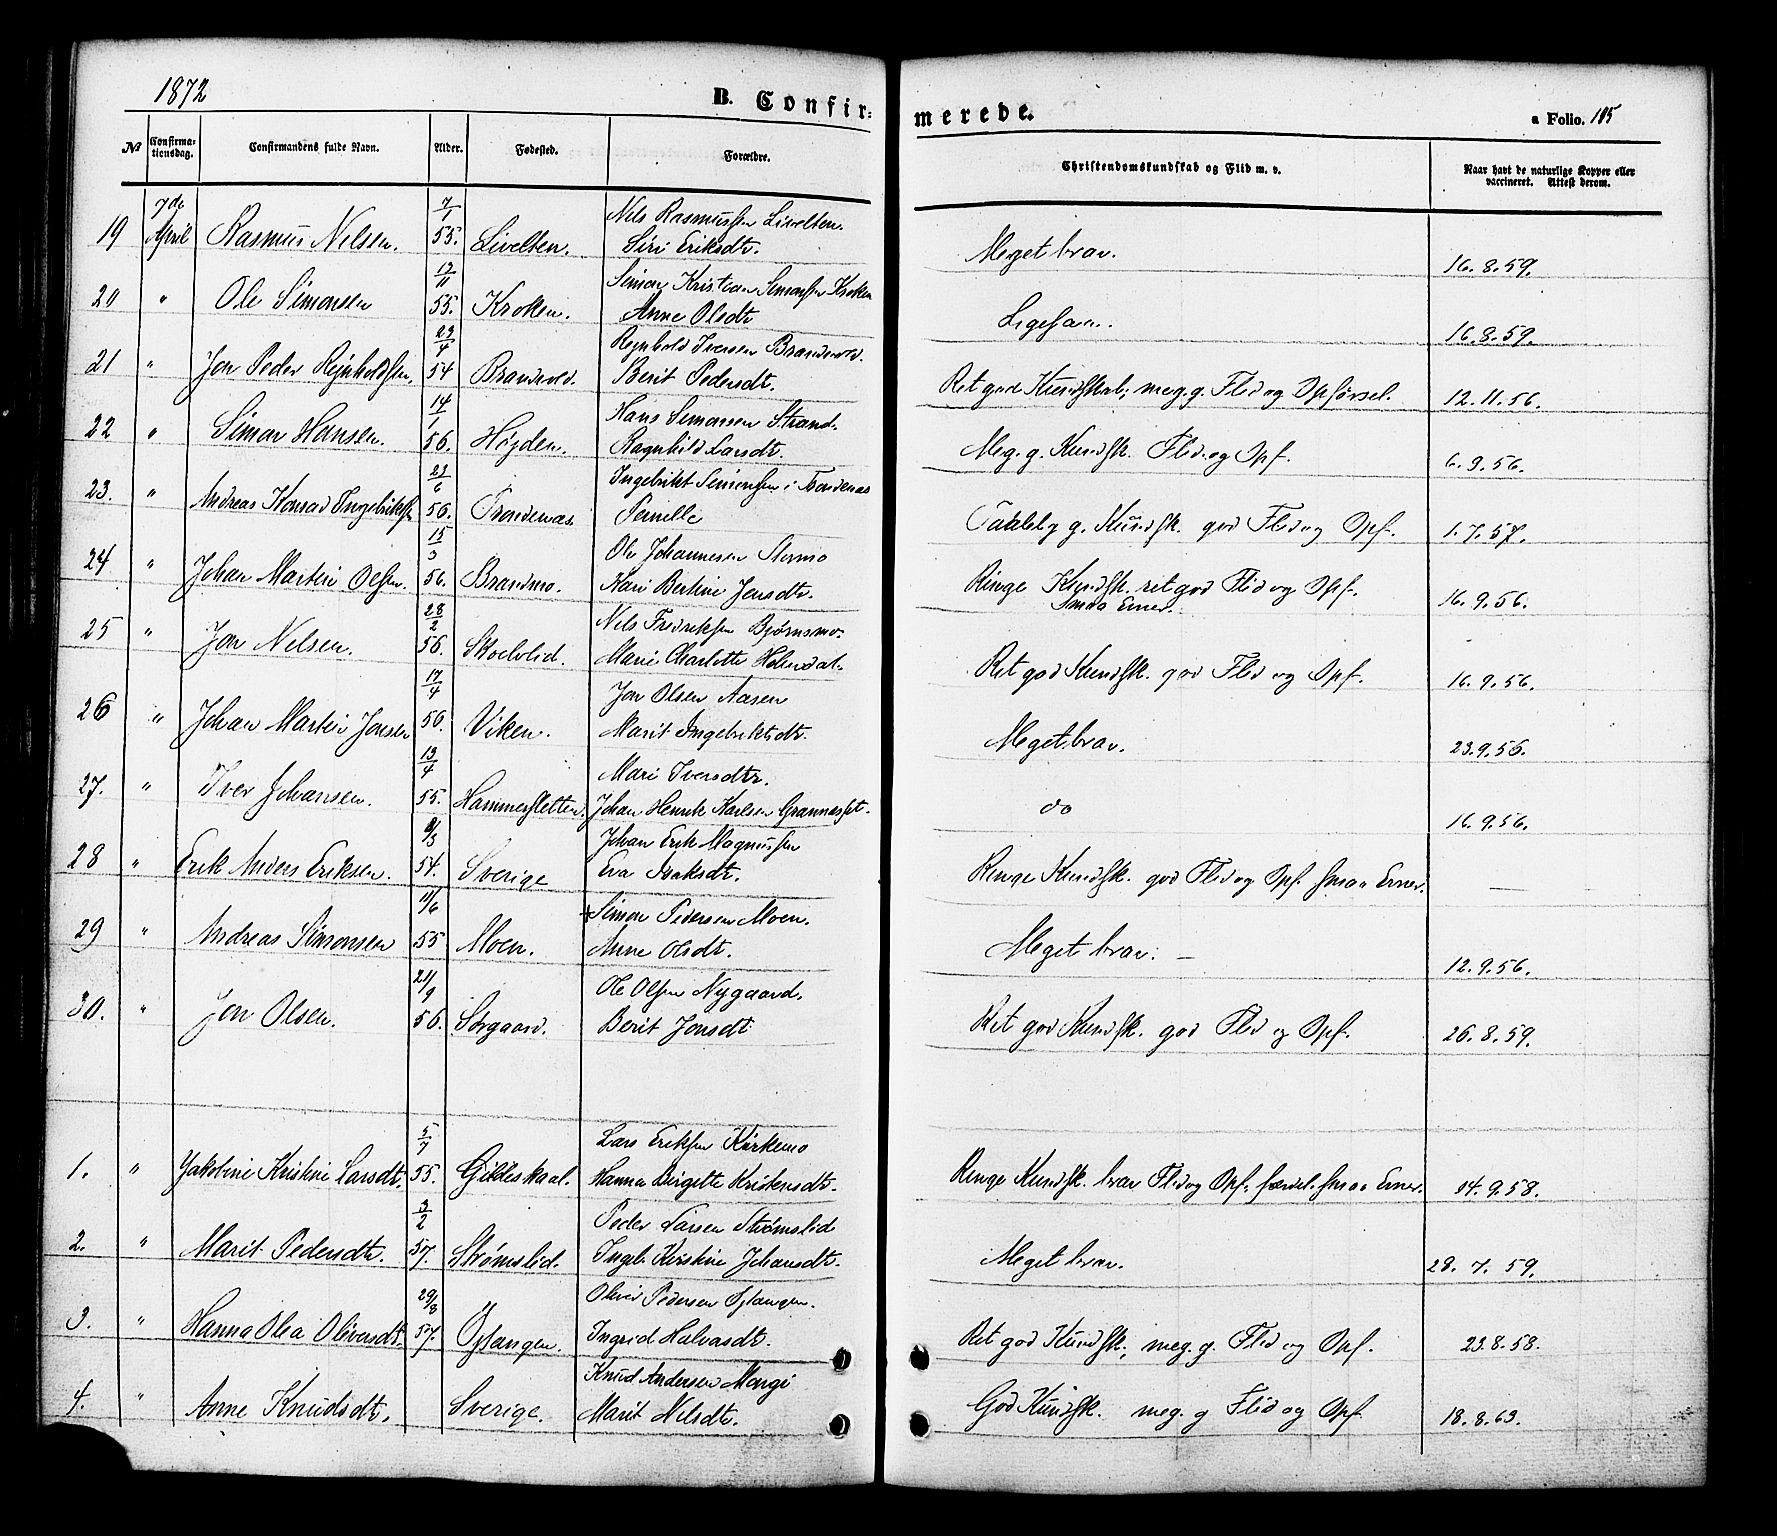 1872
B. Confir=
merede.
a Folio. 105
No
Confirma-
tionsdag.
Confirmandens fulde Navn.
Alder.
Fødested.
Forældre.
Christendomskundskab og Flid m. v.
Naar havt de naturlige Kopper eller
vaccineret. Attest derom.
7de 7/1 Nils Rasmussen Livelten.
19 April Rasmus Nilsen. 55. Livelten. Siri Eriksdtr. Meget brav. 16.8.59.
12/11 Simon Kristian Simonssen Kroken
20 " Ole Simonsen 55. Kroken. Anne Olsdtr Ligesaa. 16.8.59.
23/4 Reynhold Iversen Brandvold.
21 " Jon Peder Rejnholdsen. 54 Brandvold. Berit Pedersdtr. Ret god Kundskab; meg. g. Flid og Opførsel. 12.11.56.
14/1 Hans Simonsen Strand.
22 " Simon Hansen. 56. Høgden. Ragnhild Larsdtr. Meg. g. Kundsk. Flid og Opf. 6.9.56.
21/6 Ingebrikt Simonsen i Trondenæs
23. " Andreas Konrad Ingebriktsen 56. Trondenæs. Pernille g. Kundsk. god Flid og Opf. 1.7.57.
15/3 Ole Johannesen Stormo
24 " Johan Martin Olsen. 56. Brandmo. Kari Bertine Jensdtr. Ringe Kundsk. ret god Flid og Opf. 16.9.56.
Smaa Evner.
28/2 Nils Fredriksen Bjørnsmo.
25 " Jon Nilsen. 56. Marie Charlotte Ret god Kundsk. god Flid og Opf. 16.9.56.
17/4 Jon Olsen Aasen
26 " Johan Martin Jonsen 56. Viken. Marit Ingebriktsdtr. Meget brav. 23.9.56.
13/4 Mari Iversdtr.
27. " Iver Johansen. 55. Hammersletten. Johan Henrik Karlsen Grannesset. do 16.9.56.
9/3 Johan Erik Magnussen
28 " Erik Anders Eriksen. 54. Sverige Eva Isaksdtr. Ringe Kundsk. god Flid og Opf. smaa Evner. —
11/6 + Simon Pedersen Moen.
29 " Andreas Simonsen 55 Moen. Anne Olsdtr. Meget brav. — 12.9.56.
21/9 Ole Olsen Nygaard.
30. " Jon Olsen. 56. Sørgaard. Berit Jonsdtr Ret god Kundsk. god Flid og Opf. 26.8.59.
5/7 Lars Eriksen Kirkemo
1. " Jakobine Kristine Larsdtr. 55. Gildeskaal. Hanna Birgitte Kristensdtr. Ringe Kundsk. brav Flid og Opf. særdel. smaa Evner. 14.9.58.
3/2 Peder Larsen Strømslid
2. " Marit Pedersdtr. 57. Strømslid. Ingeb. Kirstine Johansdtr. Meget brav. 28. 7. 59.
29/8 Oliver Pedersen Øjtangen.
3. " Hanna Olea Oliversdtr. 57. Øjtangen. Ingrid Halvarsdtr. Ret god Kundsk.; meg. g. Flid og Opf. 23.8.58.
Knud Andersen Mongi
4. " Anne Knudsdtr. Sverige. Marit Nilsdtr. God Kundsk. meg. g Flid og Opf. 18.8.63.